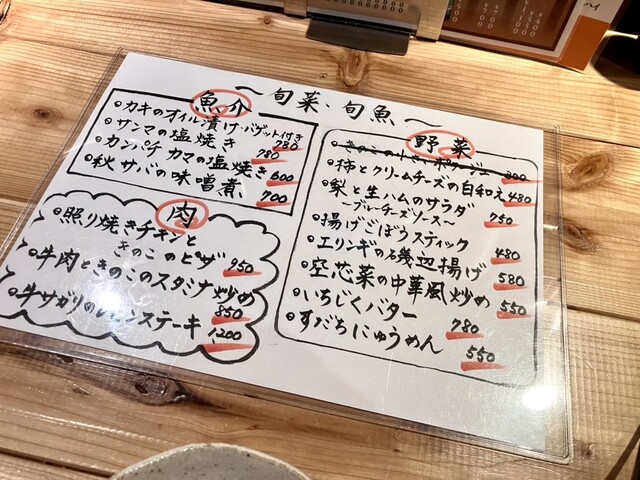 ～旬菜、旬魚～
魚介
・カキのオイル漬け・バゲット付き 780
・サンマの塩焼き 780
・カンパチ カマの塩焼き 600
・秋サバの味噌煮 700
肉
・照り焼きチキンと
きのこのピザ 950
・牛肉ときのこのスタミナ炒め 850
・牛サガリのレモンステーキ 1,200
野菜
・柿とクリームチーズの白和え 480
・梨と生ハムのサラダ
～ブルーチーズソース～ 750
・揚げごぼうスティック 480
・エリンギの磯辺揚げ 580
・空芯菜の中華風炒め 550
・いちじくバター 780
・すだちにゅうめん 550